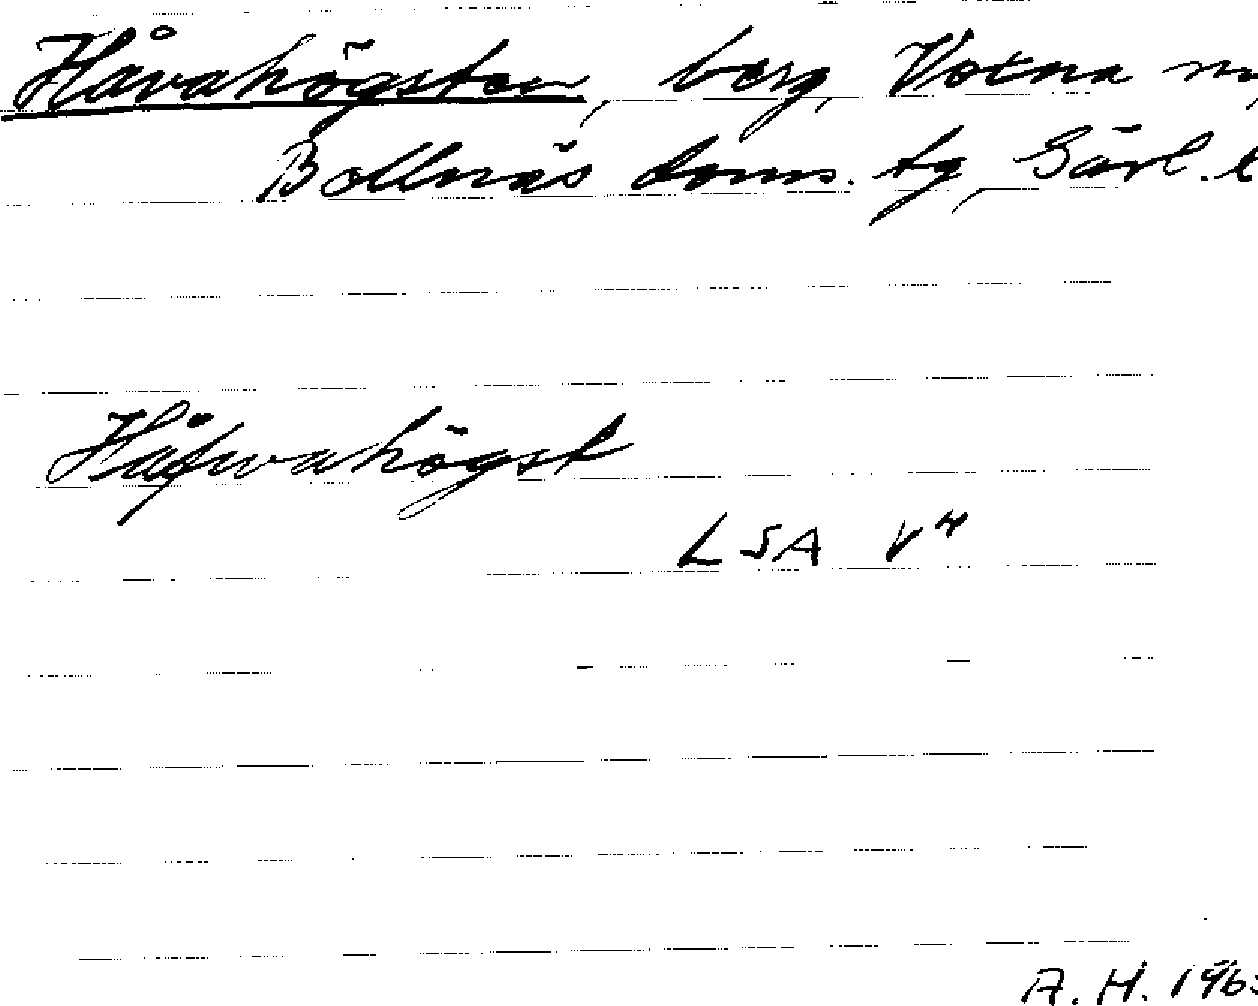 Håvahögsten, berg, Votna
Bollnäs doms. tg, Gävl. l
Håfwahögst
LSA V4
A. H. 196